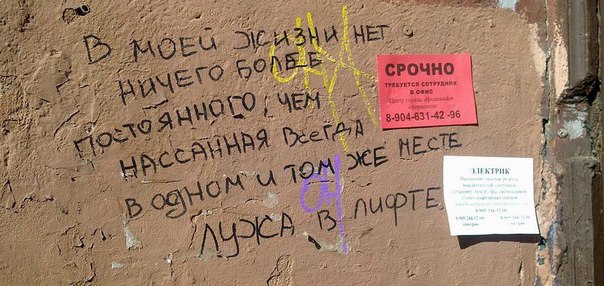 В МОЕЙ ЖИЗНИ НЕТ
НИЧЕГО БОЛЕЕ
ПОСТОЯННОГО, ЧЕМ
НАССАННАЯ ВСЕГДА
В ОДНОМ И ТОМ ЖЕ МЕСТЕ
ЛУЖА В ЛИФТЕ
СРОЧНО
ТРЕБУЕТСЯ СОТРУДНИК
В ОФИС
Центр города, официальное
оформление
8-904-631-42-96
ЭЛЕКТРИК